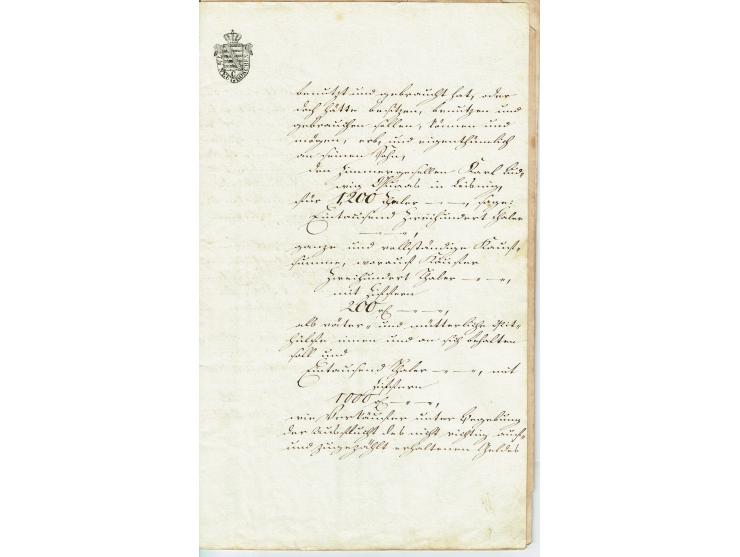 benutzt und gebraucht hat, oder
doch hätte besitzen, benutzen und
gebrauchen sollen, können und
mögen, erb- und eigenthümlich
an seinen Sohn,
den Zimmergesellen Karl Lud-
wig in Leisnig,
für 1,200 Thaler — —, sage:
Eintausend Zweihundert Thaler
— —,
ganze und vollständige Kauf-
summe, worauf Käufer
Zweihundert Thaler — —,
mit Ziffern
200 — —,
als väter- und mütterliche Mit-
hülfe innen und an sich behalten
soll und
Eintausend Thaler — —, mit
Ziffern
1000 — —,
wie Verkäufer unter Begebung
der Ausflucht des nicht richtig auf-
und zugezählt erhaltenen Geldes